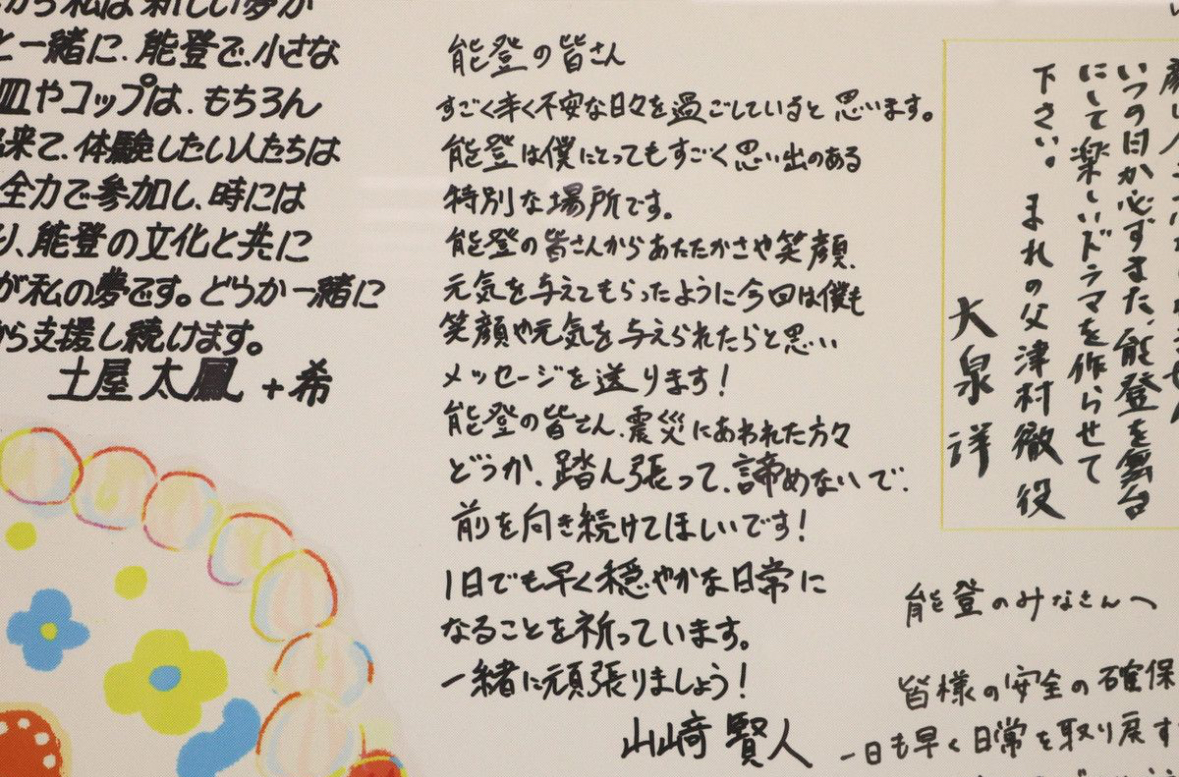 から私は新しい夢が
と一緒に、能登で、小さな
皿やコップは、もちろん
出来て、体験したい人たちは
全力で参加し、時には
り、能登の文化と共に
が私の夢です。どうか一緒に
ら支援し続けます。
土屋 太鳳 + 希
能登の皆さん
すごく辛く不安な日々を過ごしていると思います。
能登は僕にとってもすごく思い出のある
特別な場所です。
能登の皆さんからあたたかさや笑顔、
元気を与えてもらったように今回は僕も
笑顔や元気を与えられたらと思い
メッセージを送ります!
能登の皆さん、震災にあわれた方々
どうか、踏ん張って、諦めないで、
前を向き続けてほしいです!
1日でも早く穏やかな日常に
なることを祈っています。
一緒に頑張りましょう!
山﨑 賢人
いつの日か必ずまた、能登を舞台
にして楽しいドラマを作らせて
下さい。 まれの父 津村徹 役
大泉 洋
能登のみなさんへ
皆様の安全の確保
一日も早く日常を取り戻す